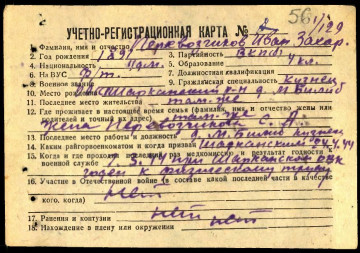 561)
УЧЕТНО-РЕГИСТРАЦИОННАЯ КАРТА № 2/129
1. Фамилия, имя и отчество Перевозчиков Иван Захар.
2. Год рождения 1891 3. Партийность ВКПб
4. Национальность 5. Образование 4 кл.
6. На ВУС 7. Должностная квалификация
8. Военное звание 9. Гражданская специальность кузнец
10. Место рождения Шарканский р-н д. М. Билиб
11. Последнее место жительства там-же
12. Где проживает в настоящее время семья (фамилия, имя и отчество жены или
жителей и точный их адрес) там-же
жена Перевозчикова С. А.
13. Последнее место работы и должность д. М. Билиб кузнец
14. Каким райгорвоенкоматом и когда призван Шарканский 04.4.44
15. Когда и где проходил последний раз медкомиссию и результат годности к
военной службе 1.3.44 при Шарканском РВК
годен к физическому труду
16. Участие в Отечественной войне (в составе какой последней части и в качестве
кого, когда) нет
17. Ранения и контузии нет
18. Нахождение в плену или окружении нет